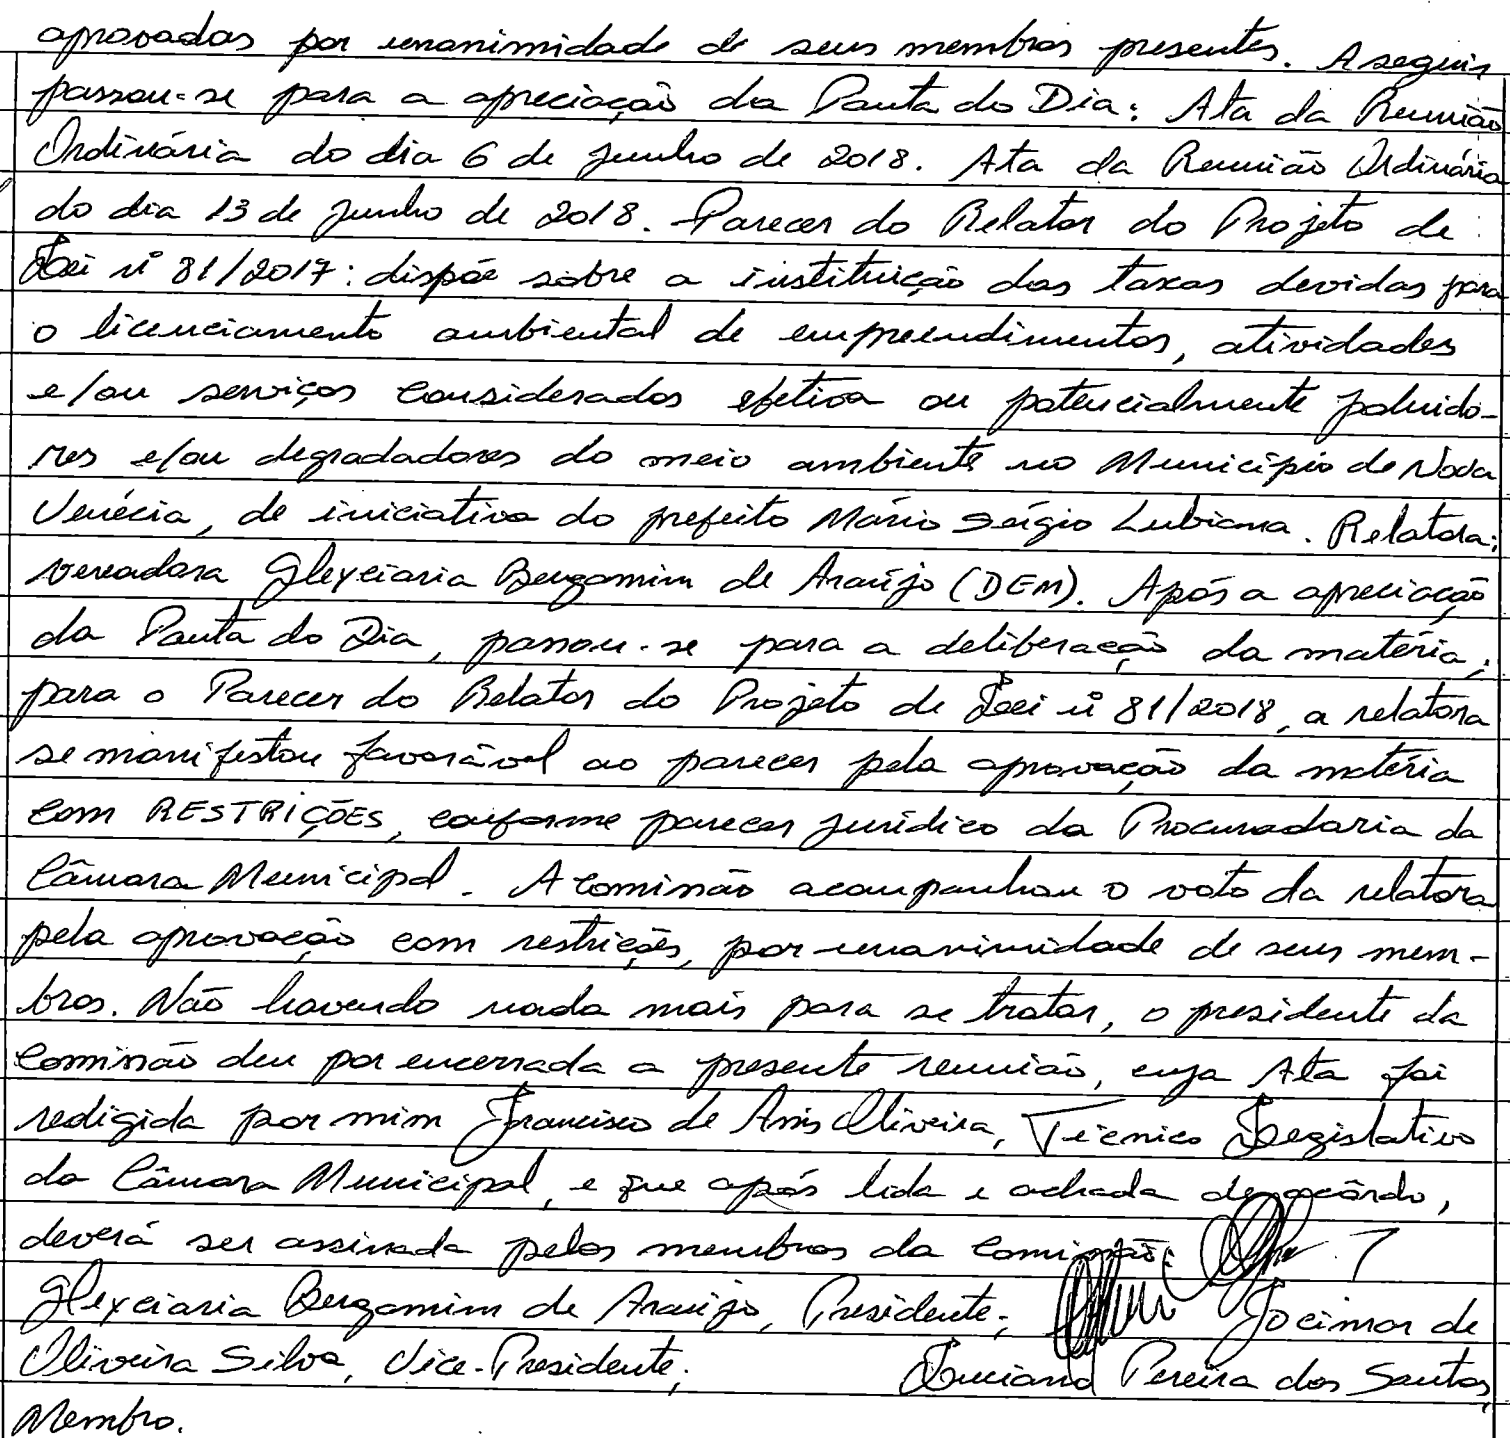 aprovadas por unanimidade de seus membros presentes. A seguir
passou-se para a apreciação da Pauta do Dia: Ata da Reunião
Ordinária do dia 6 de junho de 2018. Ata da Reunião Ordinária
do dia 13 de junho de 2018. Parecer do Relator do Projeto de
Lei nº 81/2017: dispõe sobre a instituição das taxas devidas para
o licenciamento ambiental de empreendimentos, atividades
e/ou serviços considerados efetiva ou potencialmente poluido-
res e/ou degradadores do meio ambiente no Município de Nova
Venécia, de iniciativa do prefeito Mário Sérgio Lubiana. Relatora:
vereadora Gleyciaria Bergamim de Araújo (DEM). Após a apreciação
da Pauta do Dia, passou-se para a deliberação da matéria;
para o Parecer do Relator do Projeto de Lei nº 81/2018, a relatora
se manifestou favorável ao parecer pela aprovação da matéria
com RESTRIÇÕES, conforme parecer jurídico da Procuradoria da
Câmara Municipal. A comissão acompanhou o voto da relatora
pela aprovação com restrições, por unanimidade de seus mem-
bros. Não havendo nada mais para se tratar, o presidente da
Comissão deu por encerrada a presente reunião, cuja Ata foi
redigida por mim Francisco de Assis Oliveira, Técnico Legislativo
da Câmara Municipal, e que após lida e achada de acôrdo,
deverá ser assinada pelos membros da Comissão:
Gleyciaria Bergamim de Araújo, Presidente; Jocimar de
Oliveira Silva, Vice-Presidente; Luciano Pereira dos Santos,
Membro.